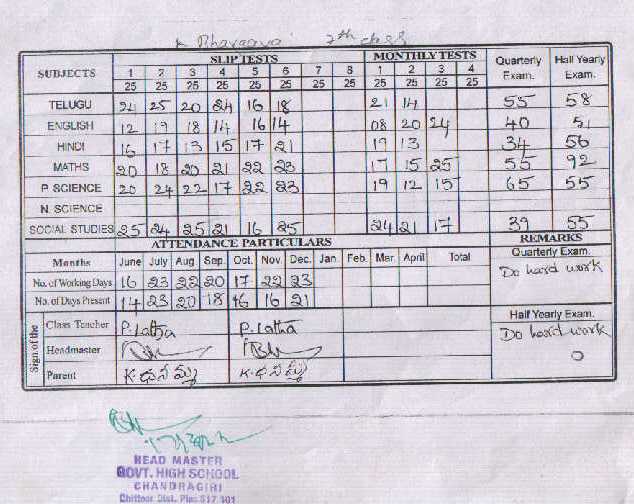 K Bhargava 7th class
SUBJECTS SLIP TESTS MONTHLY TESTS Quarterly Exam. Half Yearly Exam.
1 2 3 4 5 6 7 8 1 2 3 4
25 25 25 25 25 25 25 25 25 25 25 25
TELUGU 21 25 20 24 16 18 21 14 55 58
ENGLISH 12 19 18 14 16 14 08 20 24 40 51
HINDI 16 17 13 15 17 21 19 13 34 56
MATHS 20 18 20 21 22 23 17 15 25 55 92
P. SCIENCE 20 24 22 17 22 23 19 12 15 65 55
N. SCIENCE
SOCIAL STUDIES 25 24 25 21 16 25 24 21 17 39 55
ATTENDANCE PARTICULARS REMARKS
Months June July Aug Sep. Oct. Nov. Dec. Jan. Feb. Mar. April Total Quarterly Exam.
No. of Working Days 16 23 22 20 17 22 23 Do hard work
No. of Days Present 14 23 20 18 16 16 21
Half Yearly Exam.
Sign of the Class Teacher P. Latha P. Latha Do hard work
Headmaster
Parent K. ధనమ్మ K. ధనమ్మ
HEAD MASTER
GOVT. HIGH SCHOOL
CHANDRAGIRI
Chittoor Dist. Pin: 517 101